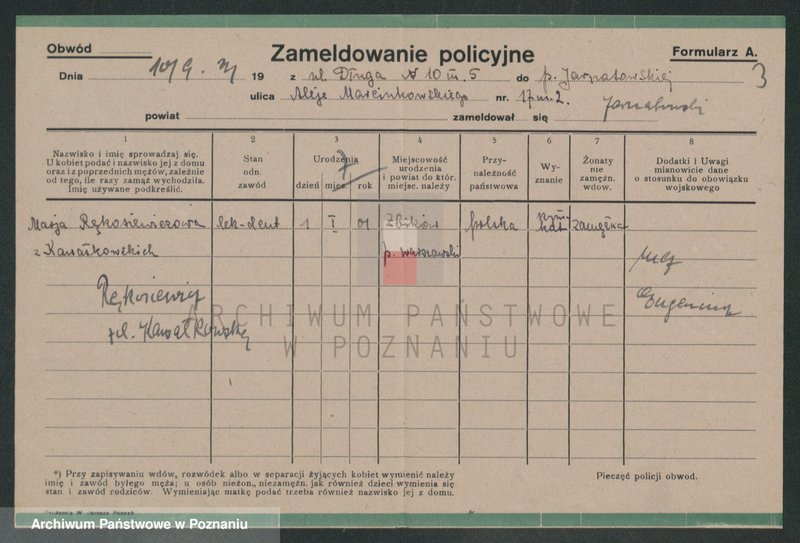 Obwód
Zameldowanie policyjne
Formularz A.
3
Dnia 10/9. 19 z ul. Długa № 10 m. 5 do p. Jarnatowskiej
ulica Aleje Marcinkowskiego nr. 17 m. 2.
powiat zameldował się
1 2 3 4 5 6 7 8
Nazwisko i imię sprowadzaj. się.
U kobiet podać i nazwisko jej z domu
oraz i z poprzednich mężów, zależnie
od tego, ile razy zamąż wychodziła.
Imię używane podkreślić.
Stan
odn.
zawód
Urodzenia
dzień mies. rok
7
Miejscowość
urodzenia
i powiat do któr.
miejsc. należy
Przy-
należność
państwowa
Wy-
znanie
Żonaty
nie
zamężn.
wdow.
Dodatki i Uwagi
mianowicie dane
o stosunku do obowiązku
wojskowego
Marja Rękosiewiczowa lek-dent 1 I 01 Zbików polska rzym. kat. zamężna
z Kawałkowskich p. warszawski
mąż
Rękosiewicz
Eugeniusz
z d. Kawałkowskiej
ARCHIWUM PAŃSTWOWE
W POZNANIU
*) Przy zapisywaniu wdów, rozwódek albo w separacji żyjących kobiet wymienić należy
imię i zawód byłego męża; u osób nieżon., niezamężn. jak również dzieci wymienia się
stan i zawód rodziców. Wymieniając matkę podać trzeba również nazwisko jej z domu.
Pieczęć policji obwod.
Drukarnia W. Jamsza Poznań
Archiwum Państwowe w Poznaniu